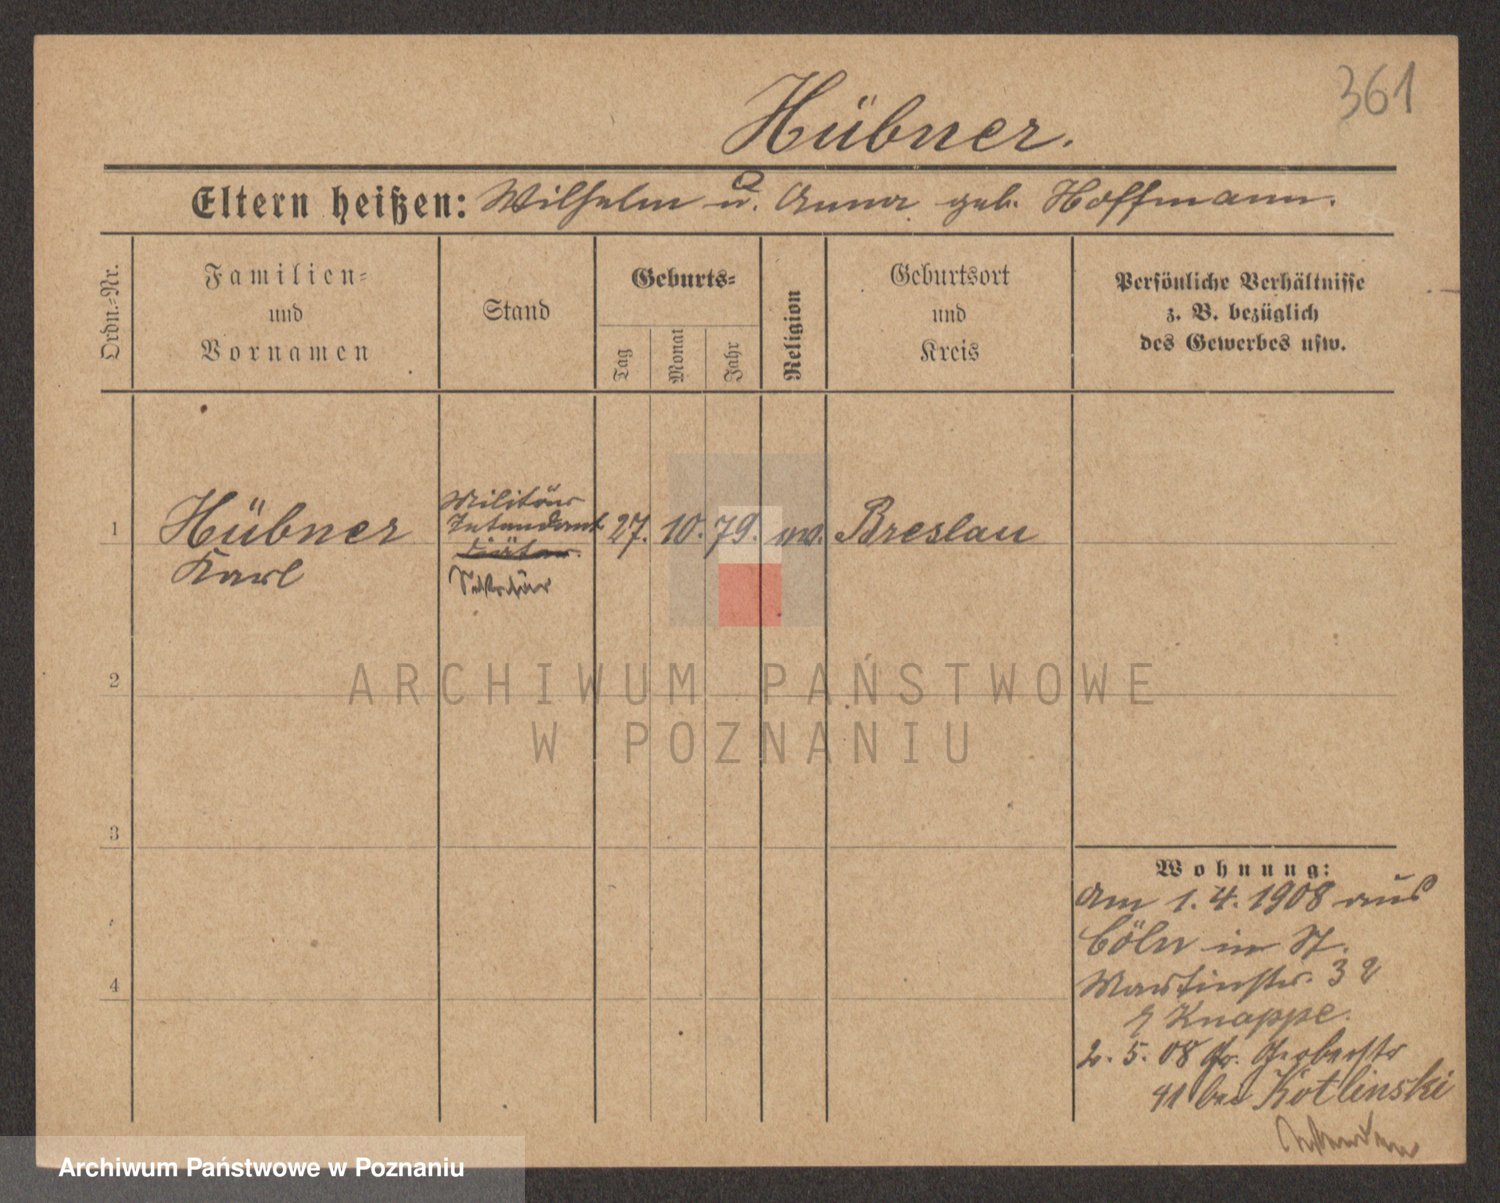 361
Hübner.
Eltern heißen: Wilhelm u. Anna geb. Hoffmann.
Ordn.-Nr.
Familien-
und
Vornamen
Stand
Geburts-
Tag
Monat
Jahr
Religion
Geburtsort
und
Kreis
Persönliche Verhältnisse
z. B. bezüglich
des Gewerbes usw.
1
Hübner
Karl
Militär
Intendant
Diätar.
Sekretär
27. 10. 79. ev. Breslau
2
3
4
Wohnung:
Am 1. 4. 1908 aus
Cöln in St.
Martinstr. 32
Knappe.
2. 5. 08 Gr. Gerberstr
41 bei Kotlinski
ARCHIWUM PAŃSTWOWE
W POZNANIU
Archiwum Państwowe w Poznaniu